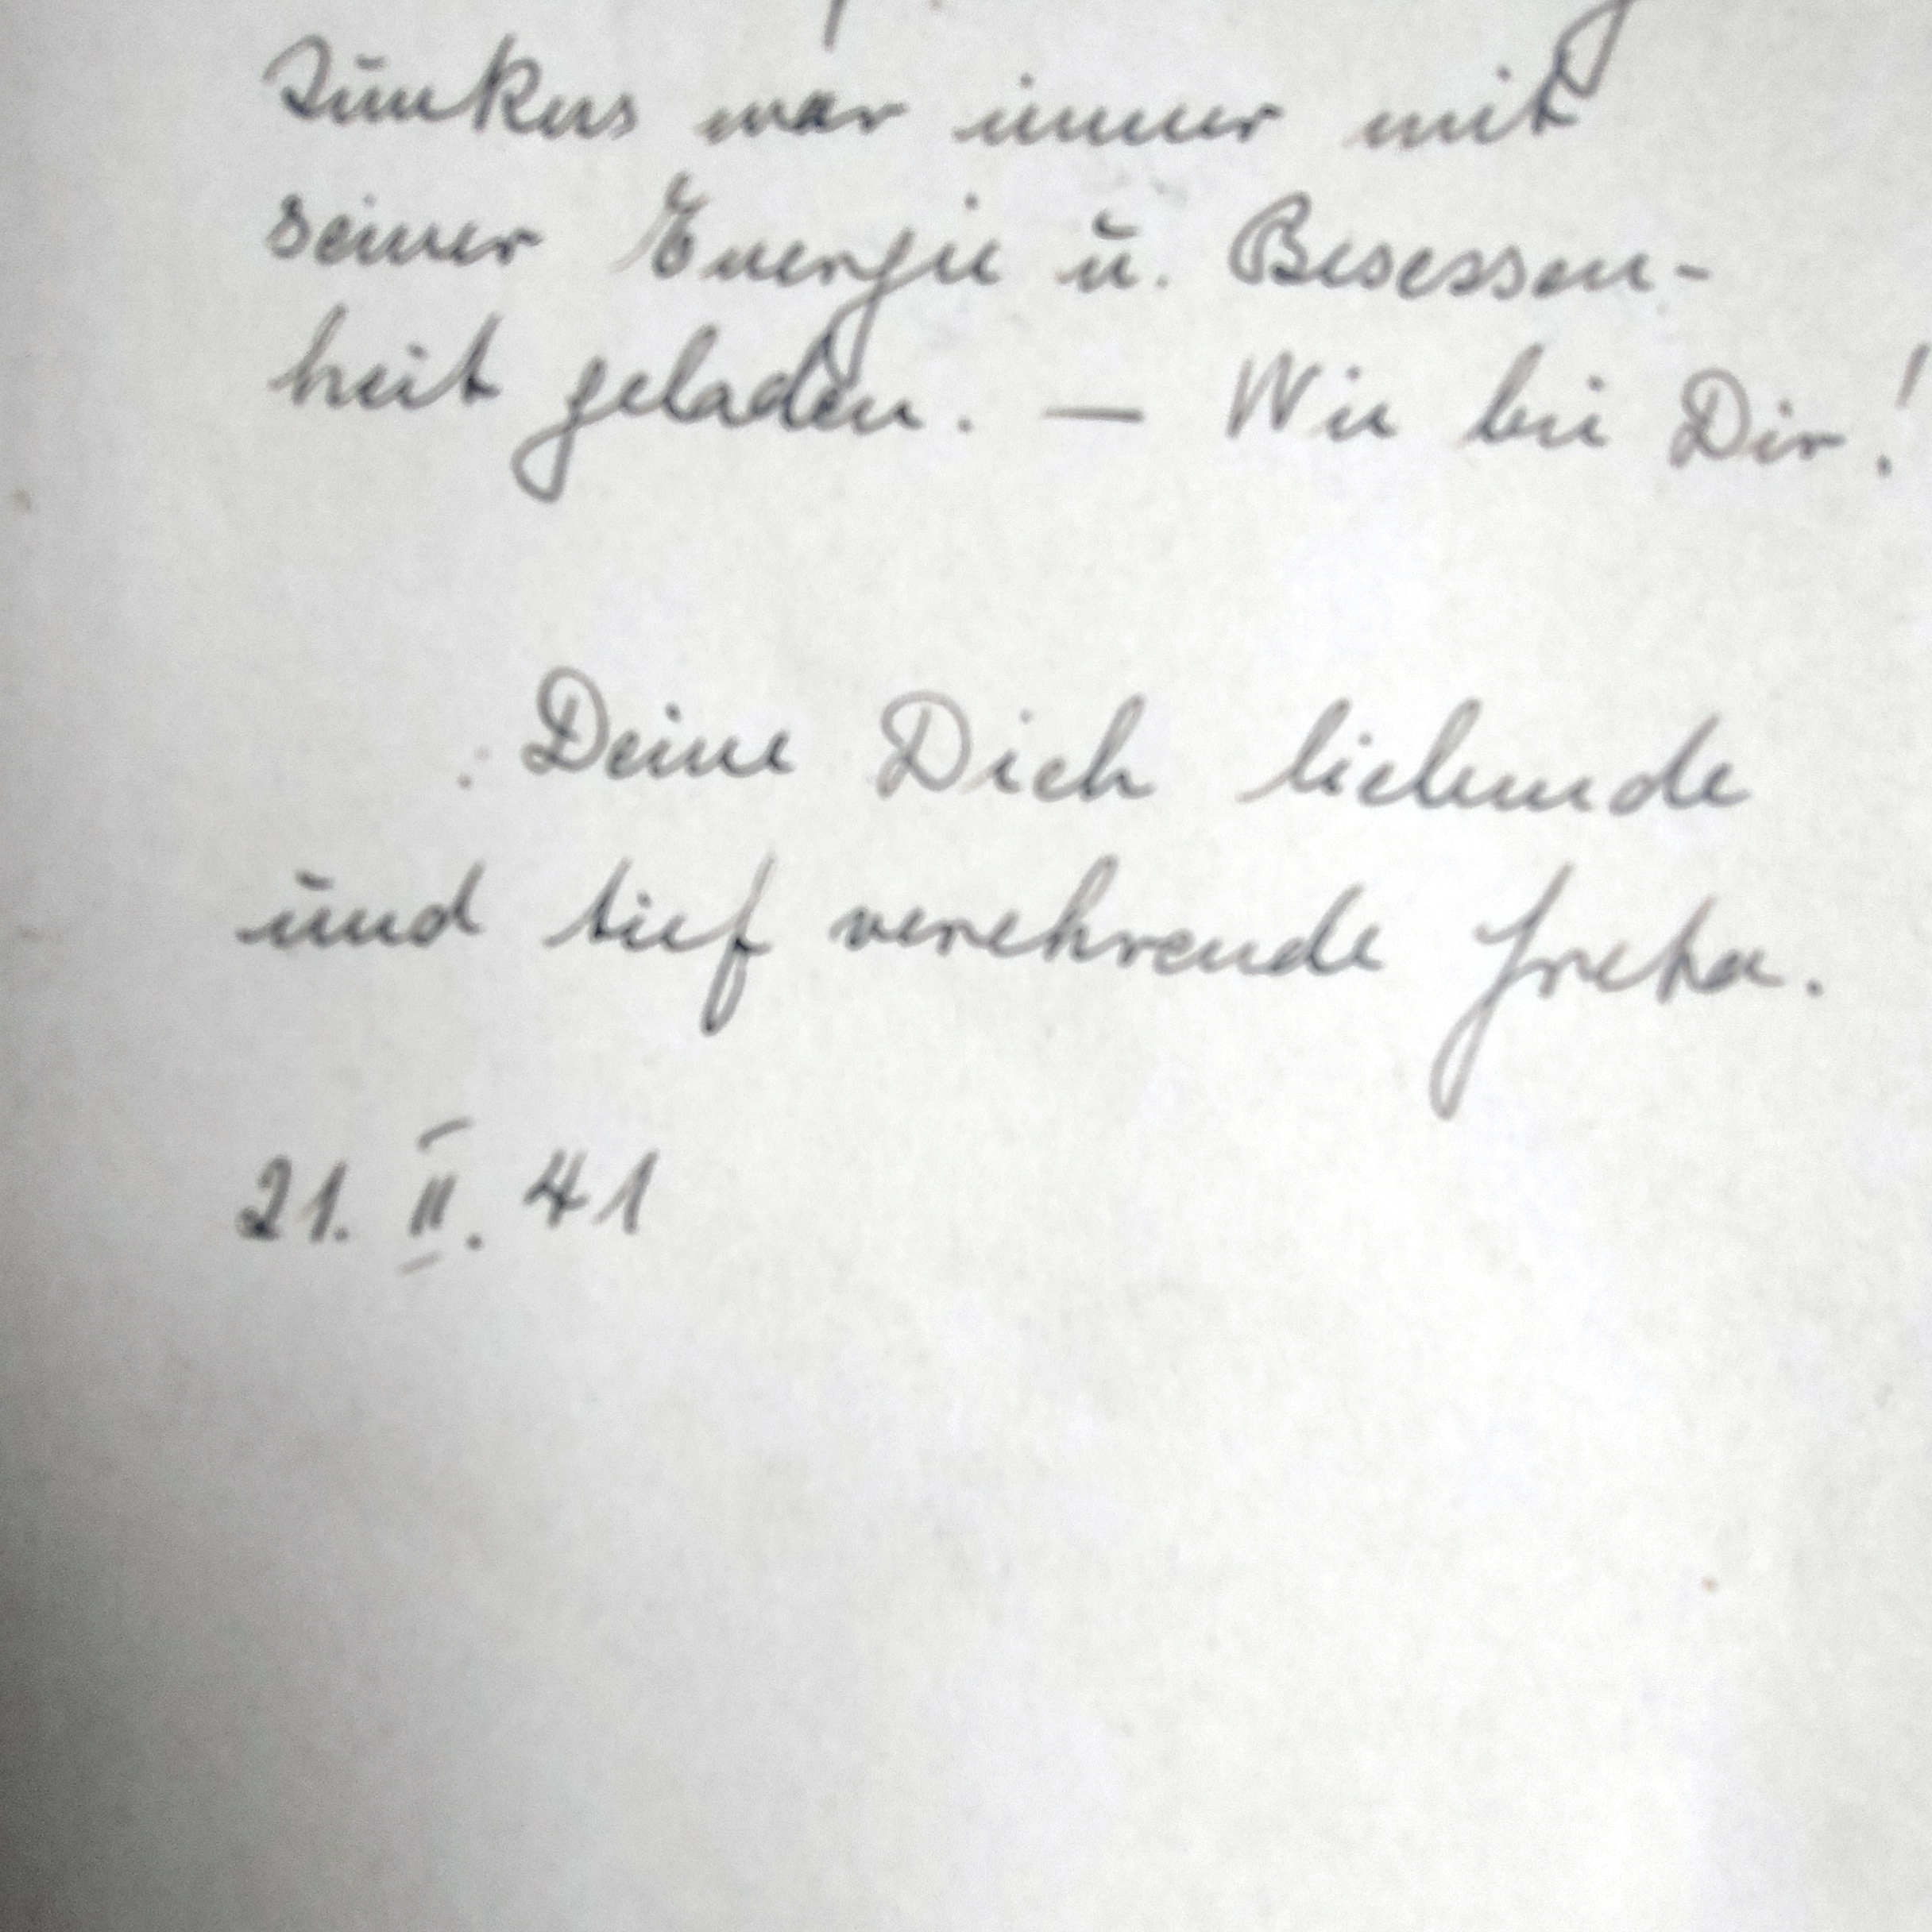 Junkers war immer mit
seiner Energie u. Besessen-
heit geladen. — Wie bei Dir!
Deine Dich liebende
und tief verehrende
21. II. 41